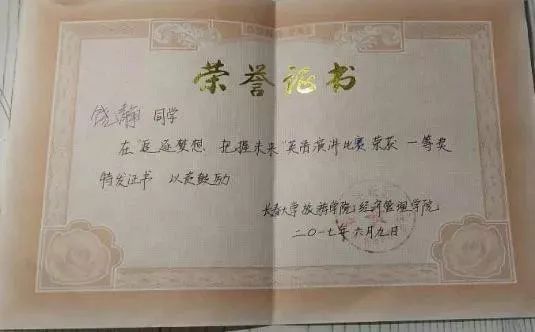 荣誉证书
同学
在"追逐梦想 把握未来"英语演讲比赛 荣获 一等奖
特发证书 以资鼓励
长春大学旅游学院经济管理学院
二〇一七年六月九日